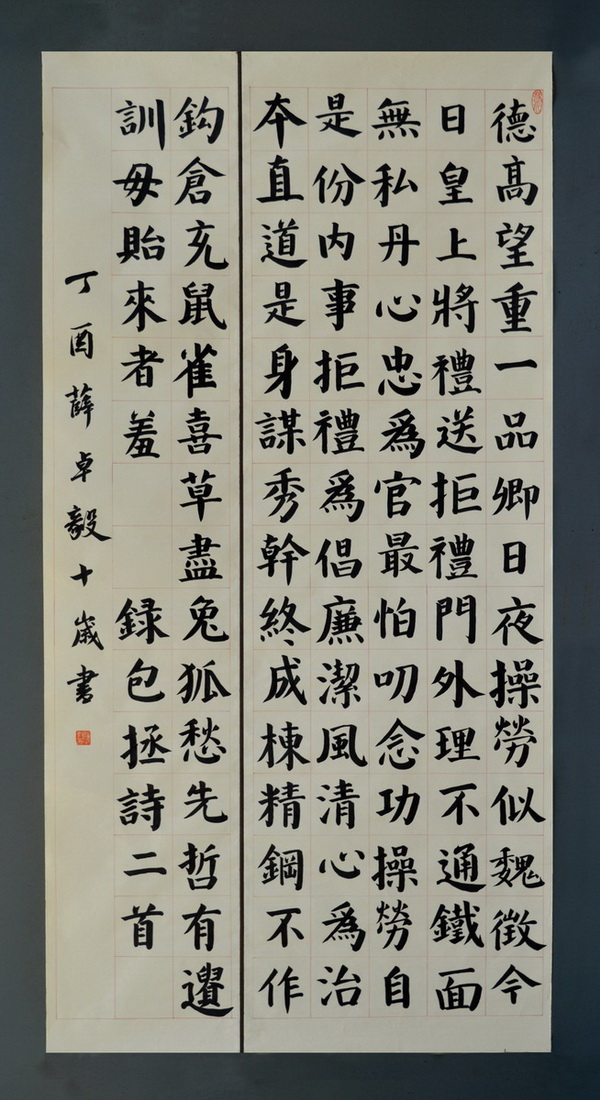 德髙望重一品卿日夜操勞似魏徵今
日皇上將禮送拒禮門外理不通鐵面
無私丹心忠爲官最怕叨念功操勞自
是份内事拒禮爲倡廉潔風清心爲治
本直道是身謀秀幹終成棟精鋼不作
鈎倉充鼠雀喜草盡兔狐愁先哲有遺
訓毋貽來者羞 録包拯詩二首
丁酉薛卓毅十歲書